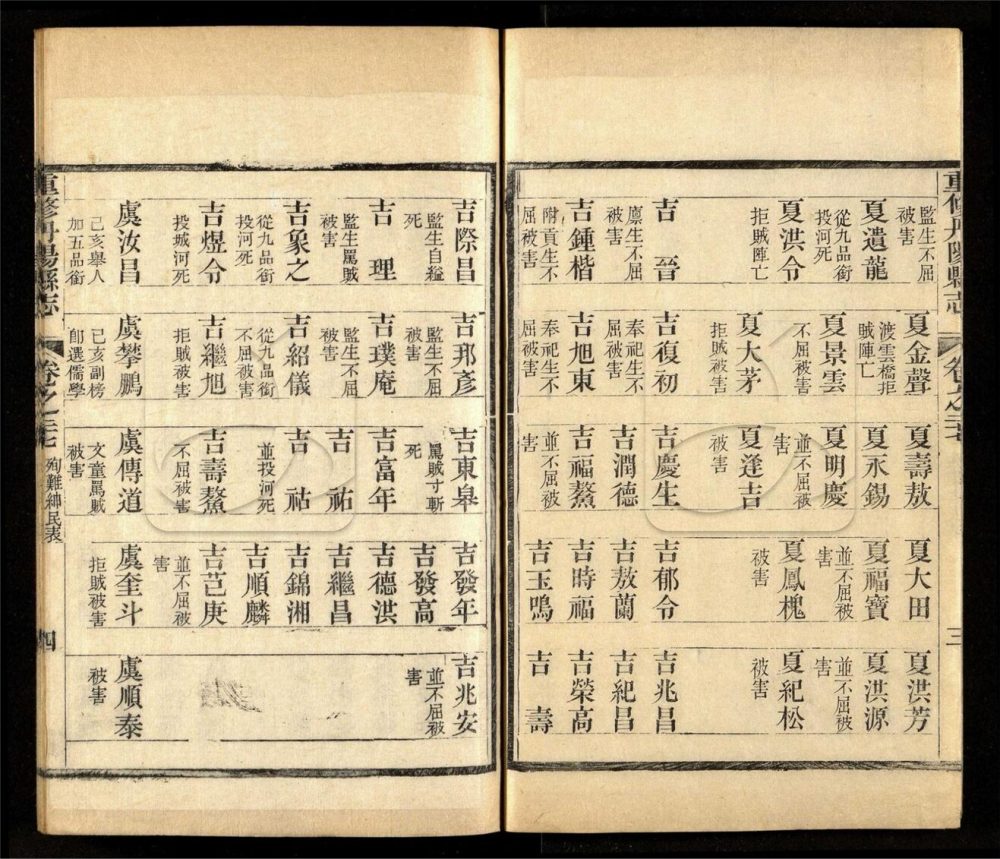 重修丹陽縣志
卷之二十七
三
監生不屈
被害
夏遺龍
從九品銜
投河死
夏洪令
拒賊陣亡
吉晉
廩生不屈
被害
吉鍾楷
附貢生不
屈被害
夏金聲
渡雲橋拒
賊陣亡
夏景雲
不屈被害
夏大茅
拒賊被害
吉復初
奉祀生不
屈被害
吉旭東
奉祀生不
屈被害
夏壽敖
夏永錫
夏明慶
並不屈被
害
夏逢吉
被害
吉慶生
吉潤德
吉福鰲
並不屈被
害
夏大田
夏福寶
並不屈被
害
夏鳳槐
被害
吉郁令
吉敖蘭
吉時福
吉玉鳴
夏洪芳
夏洪源
並不屈被
害
夏紀松
被害
吉兆昌
吉紀昌
吉榮高
吉壽
吉際昌
監生自縊
死
吉理
監生罵賊
被害
吉象之
從九品銜
投河死
吉煜令
投城河死
虞汝昌
己亥舉人
加五品銜
吉邦彥
監生不屈
被害
吉璞庵
監生不屈
被害
吉紹儀
從九品銜
不屈被害
吉繼旭
拒賊被害
虞攀鵬
己亥副榜
卽選儒學
吉東皋
罵賊寸斬
死
吉富年
吉祐
吉祜
並投河死
吉壽鰲
不屈被害
虞傳道
文童罵賊
被害
吉發年
吉發高
吉德洪
吉繼昌
吉錦湘
吉順麟
吉芑庚
並不屈被
害
虞奎斗
拒賊被害
吉兆安
並不屈被
害
虞順泰
被害
重修丹陽縣志
卷之二十七
殉難紳民表
四